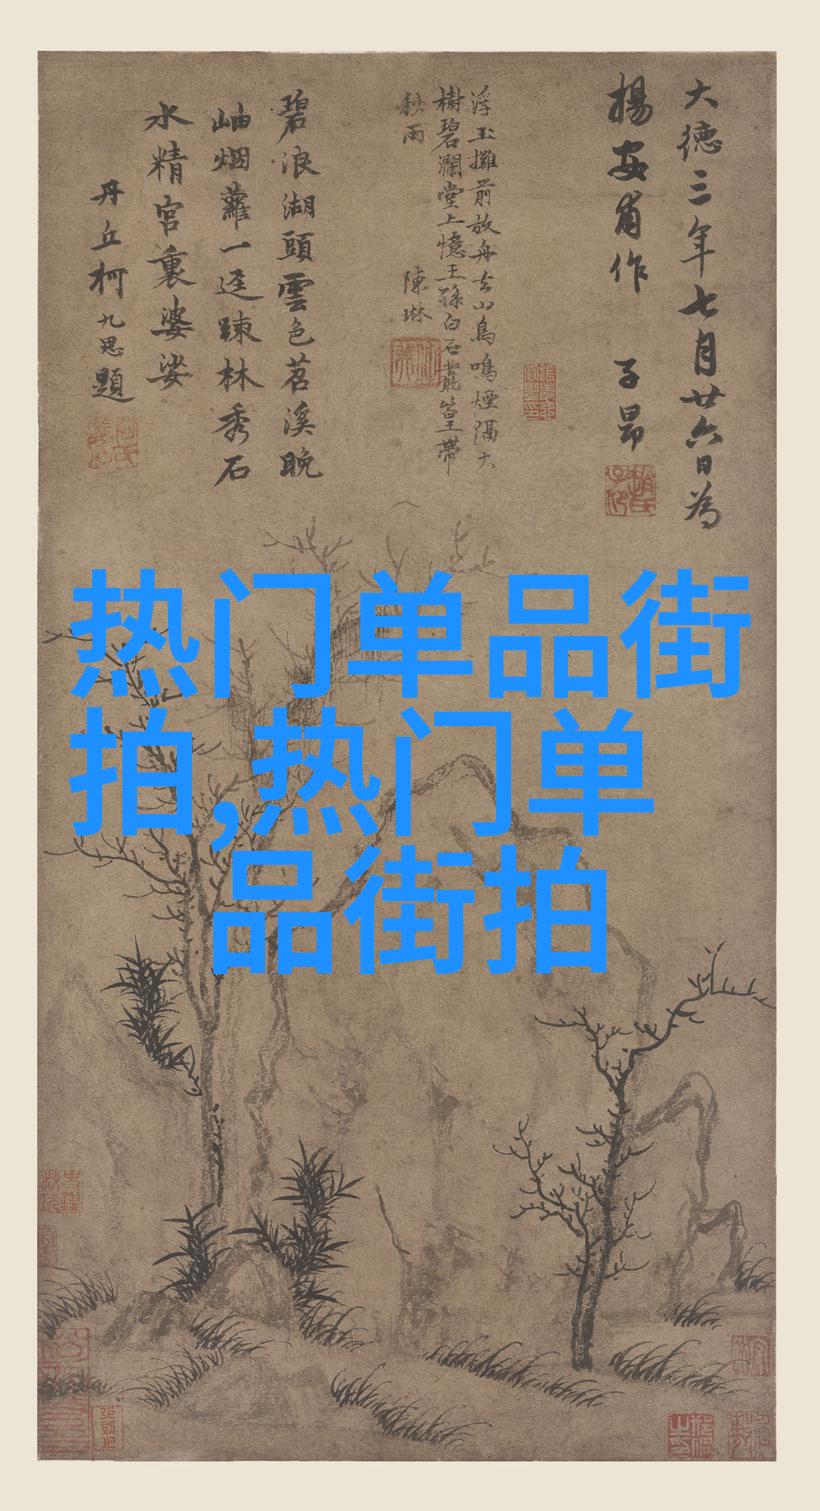 大德三年七月廿六日為
楊安甫作 子昂
浮玉攤前放舟去山鳥鳴煙隔大
樹碧瀾堂上憶王孫白石叢篁帶
秋雨 陳琳
碧浪湖頭雲色茗溪晚
岫烟蘿一逕踈林秀石
水精宮裏婆娑
丹丘柯九思題
热门单品街
拍,热门单
品街拍